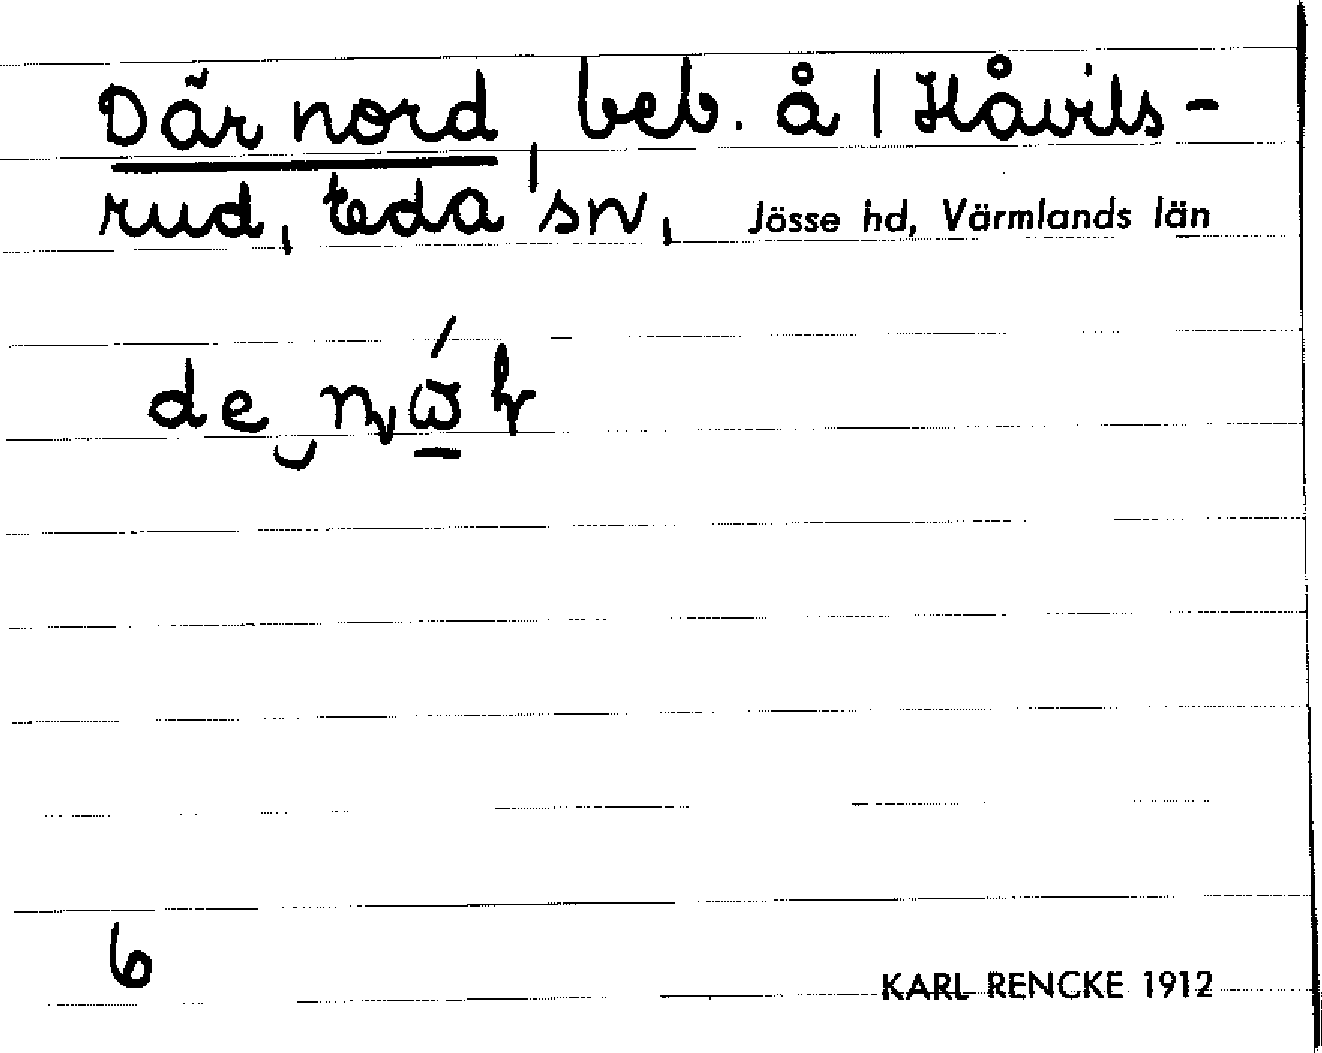 Där nord, beb. å 1 Håvils-
rud, Eda sn, Jösse hd, Värmlands län
6
KARL RENCKE 1912